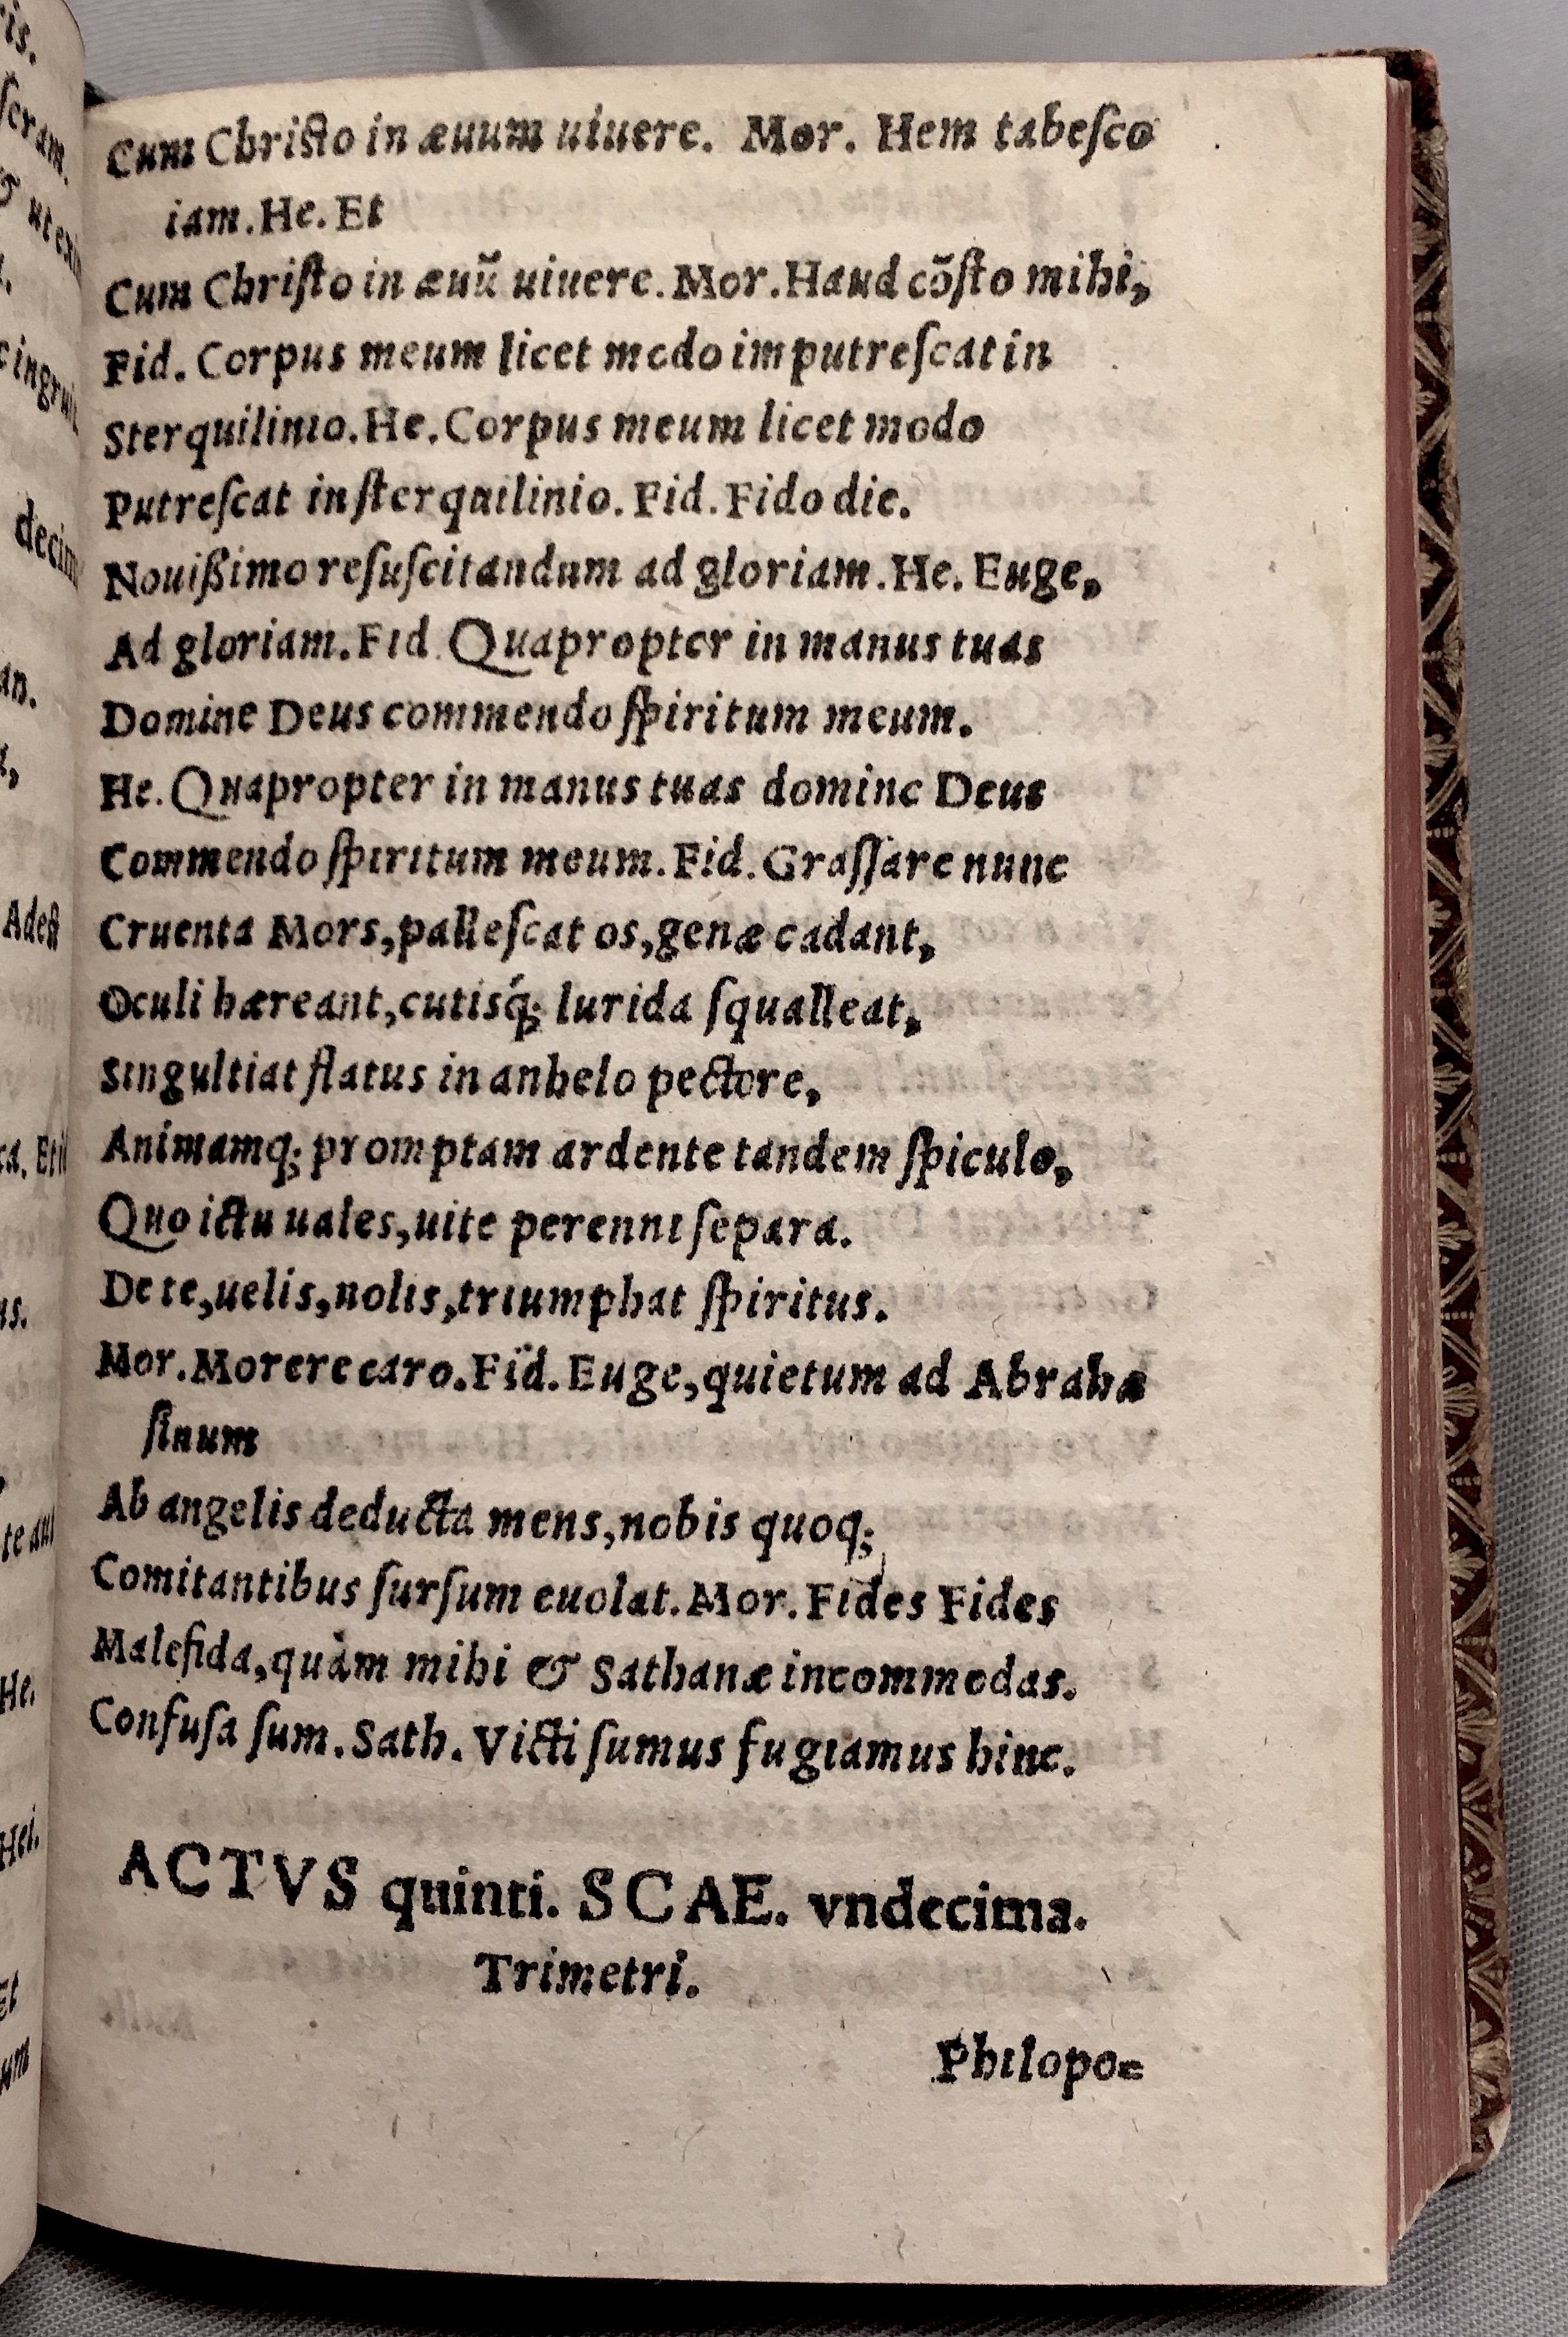 Cum Chriſto in æuum uiuere. Mor. Hem tabeſco
iam. He. Et
Cum Chriſto in æuũ uiuere. Mor. Haud cõſto mihi,
Fid. Corpus meum licet modo imputreſcat in
Sterquilinio. He. Corpus meum licet modo
Putreſcat in ſterquilinio. Fid. Fido die.
Nouißimo reſuſcitandum ad gloriam. He. Euge,
Ad gloriam. Fid. Quapropter in manus tuas
Domine Deus commendo ſpiritum meum.
He. Quapropter in manus tuas domine Deus
Commendo ſpiritum meum. Fid. Graſſare nunc
Cruenta Mors, palleſcat os, genæ cadant,
Oculi hæreant, cutisq́; lurida ſqualleat,
Singultiat flatus in anhelo pectore,
Animamq; promptam ardente tandem ſpiculo,
Quo ictu uales, uite perenni ſepara.
De te, uelis, nolis, triumphat ſpiritus.
Mor. Morere caro. Fid. Euge, quietum ad Abrahæ
ſinum
Ab angelis deducta mens, nobis quoq;
Comitantibus ſurſum euolat. Mor. Fides Fides
Malefida, quàm mihi & Sathanæ incommodas.
Confuſa ſum. Sath. Victi ſumus fugiamus hinc.
ACTVS quinti. SCAE. vndecima.
Trimetri.
Philopo=
ris.
ſeram.
& ut
ingruit
decim
an.
Adeſt
us.
te
He.
Hei.
Et
um